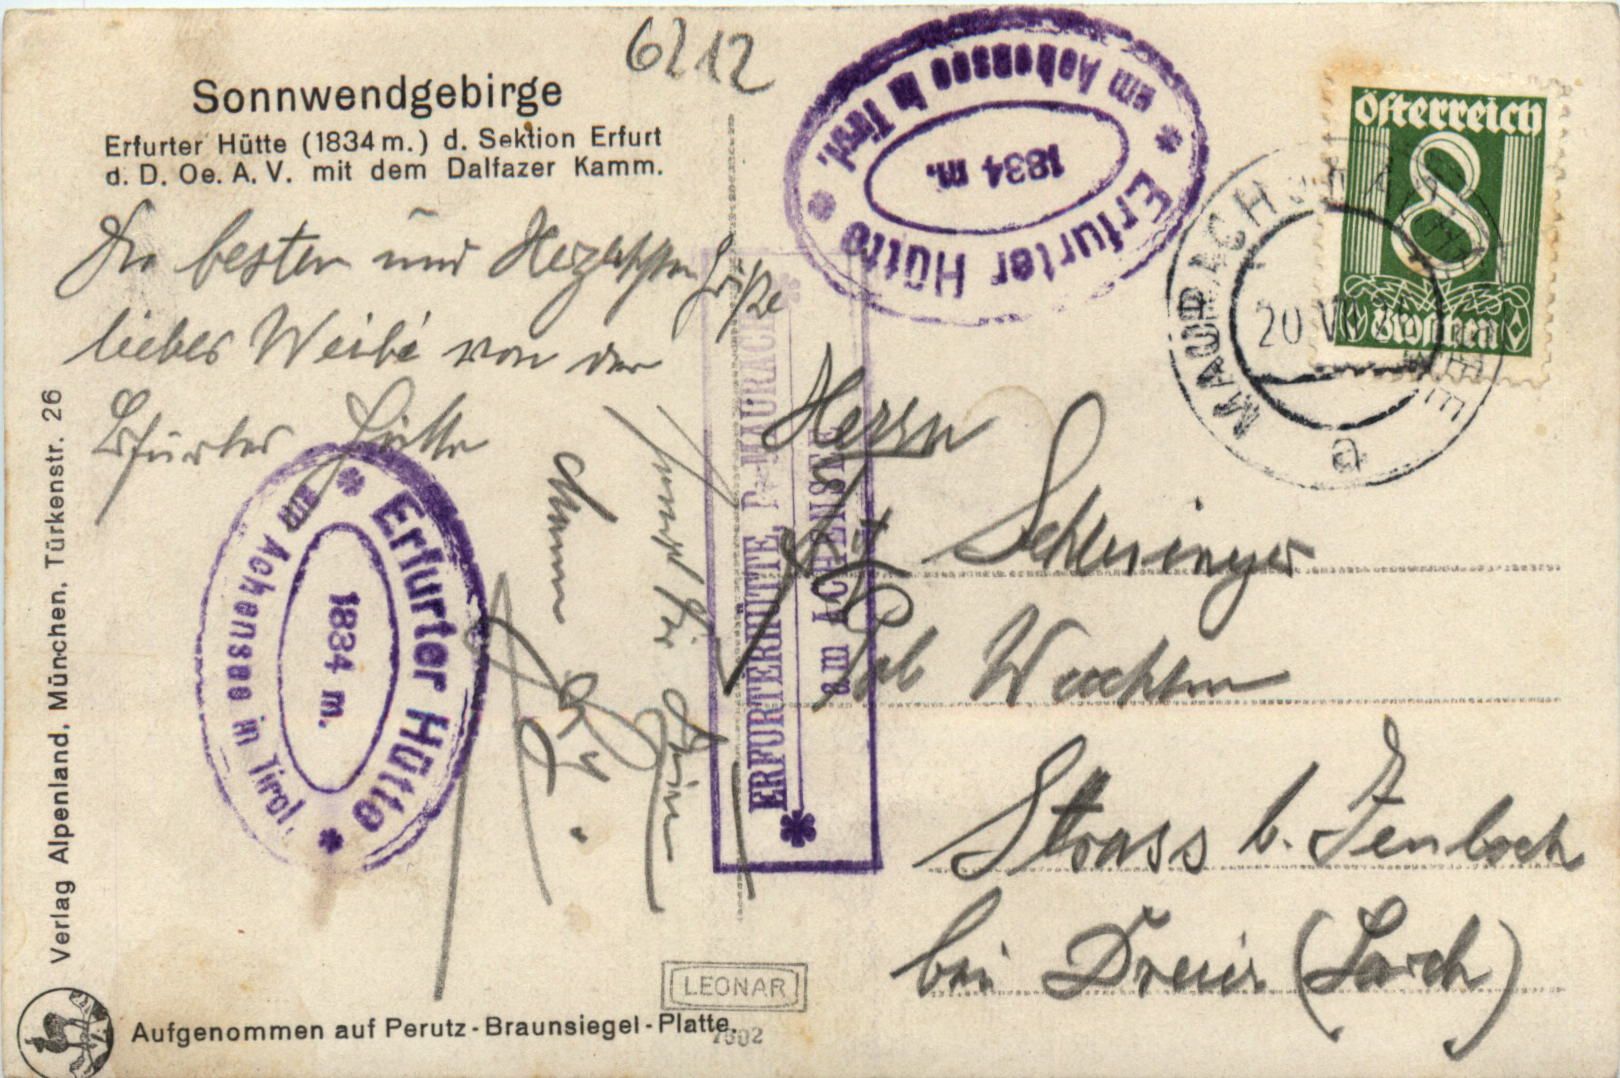 6212
Sonnwendgebirge
Erfurter Hütte (1834 m.) d. Sektion Erfurt
d. D. Oe. A. V. mit dem Dalfazer Kamm.
Die besten und Herzlichsten Grüße
liebes Weibi von der
Erfurter Hütte
Verlag Alpenland, München, Türkenstr. 26
✻ Erfurter Hütte ✻
am Achensee in Tirol.
1834 m.
✻ Erfurter Hütte ✻
am Achensee in Tirol.
1834 m.
ERFURTERHÜTTE, P. MAURACH
am ACHENSEE
Österreich
8
Groschen
MAURACH
20 VII
a
Herrn
Schlesinger
Strass b. Jenbach
bei
LEONAR
7692
Aufgenommen auf Perutz-Braunsiegel-Platte.